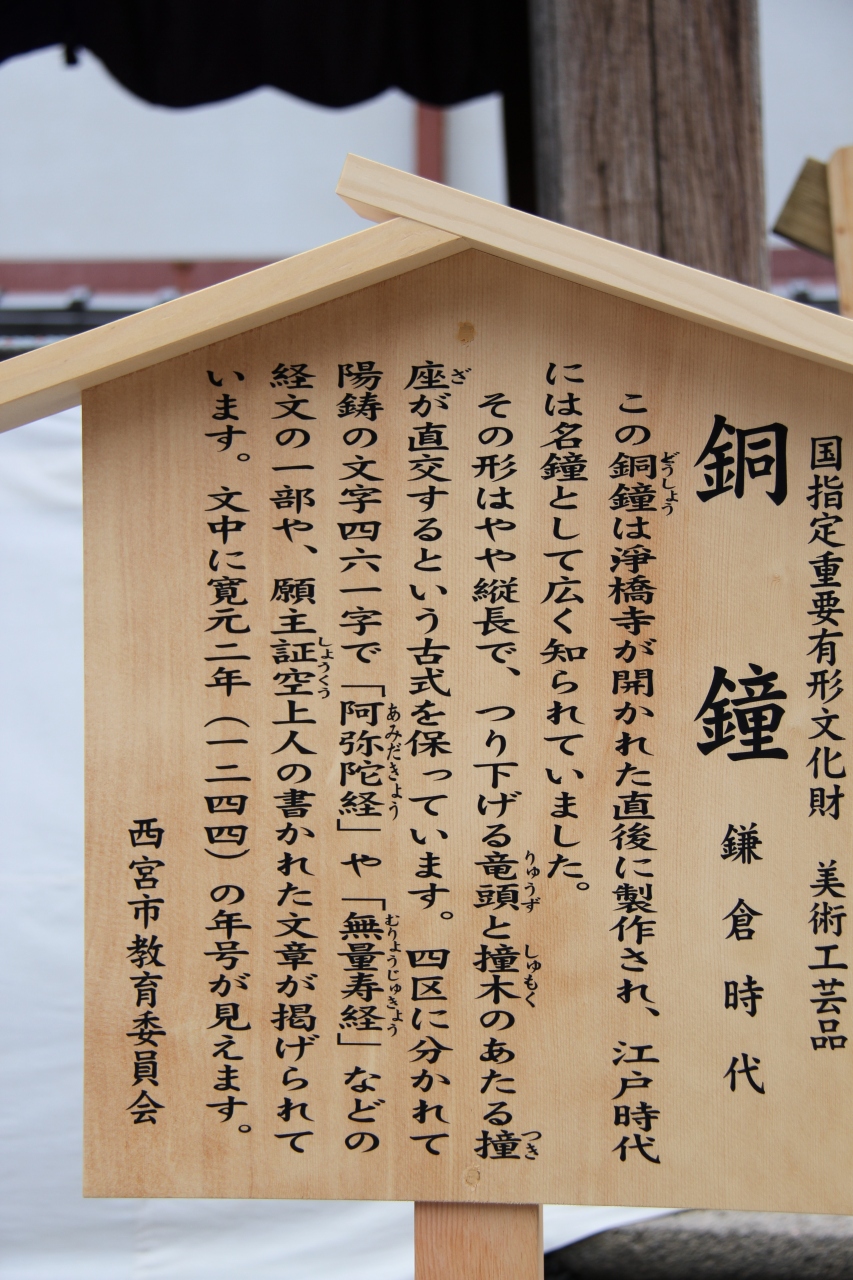 国指定重要有形文化財　美術工芸品
銅鐘　鎌倉時代
この銅鐘は淨橋寺が開かれた直後に製作され、江戸時代
どうしょう
には名鐘として広く知られていました。
その形はやや縦長で、つり下げる竜頭と撞木のあたる撞
りゅうず
しゅもく
つき
座が直交するという古式を保っています。四区に分かれて
ざ
陽鋳の文字四六一字で「阿弥陀経」や「無量寿経」などの
あみだきょう
むりょうじゅきょう
経文の一部や、願主証空上人の書かれた文章が掲げられて
しょうくう
います。文中に寛元二年（一二四四）の年号が見えます。
西宮市教育委員会